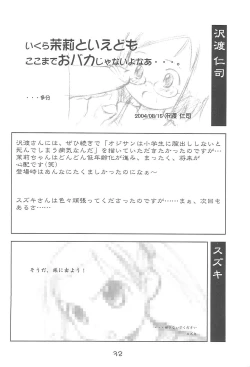 沢渡 仁司
いくら茉莉といえども
ここまでおバカじゃないよなあ・・・
・・・多分
2004/08/15 沢渡 仁司
沢渡さんには、ぜひ続きで「オジサンは小学生に露出ししないと
死んでしまう病気なんだ」を描いていただきたかったのですが…
茉莉ちゃんはどんどん低年齢化が進み、まったく、将来が
心配です(笑)
登場時はあんなにたくましかったのになぁ～
スズキさんは色々頑張ってくださったのですが……まぁ、次回も
あるさ……
スズキ
そうだ、旅に出よう！
92